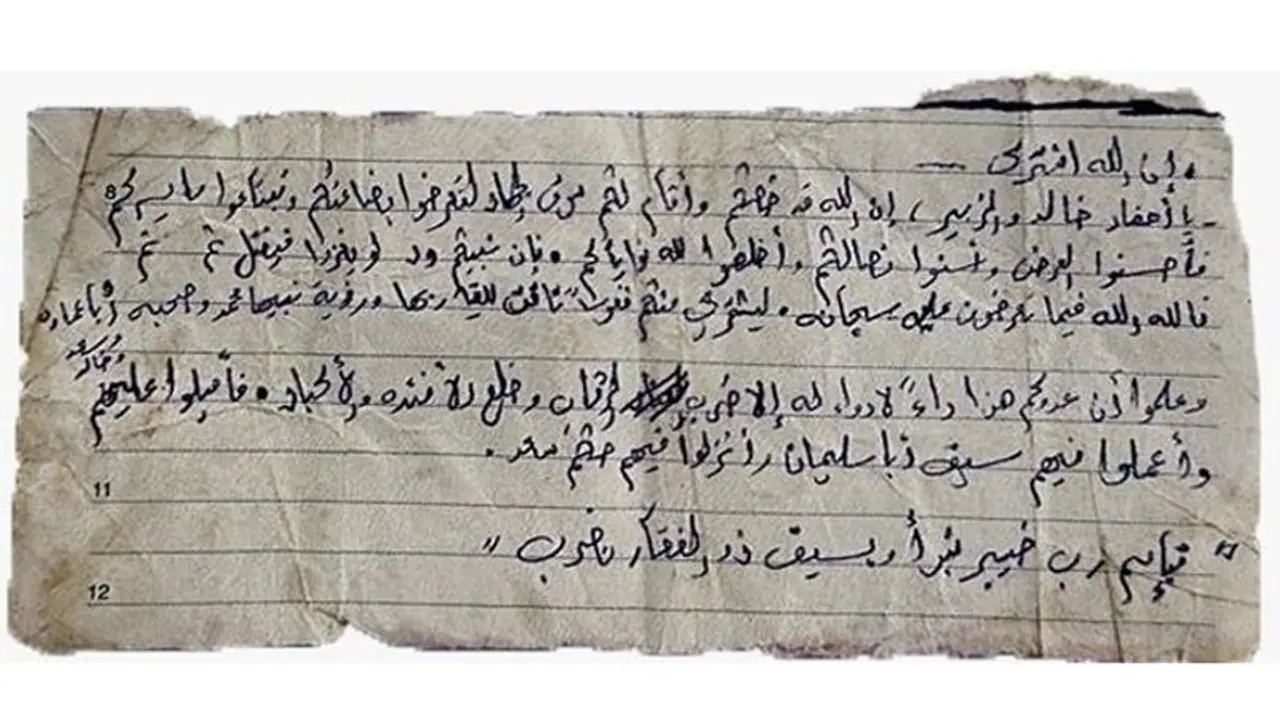 • إن الله اشترى —
- يا أحفاد خالد والزبير، إن الله قد خصكم وأقام لكم سوق جهاد لتعرضوا بضاعتكم وتبتاعوا
8
فأحسنوا العرض وأسنوا نصالكم وأخلصوا لله نواياكم. فإن نبيكم ود لو يغزوا فيقتل ثم ثم
فالله الله فيما تعرضون عليه سبحانه. ليشتري منكم نفوساً تاقت للقاء ربها ورؤية نبيها محمد وصحبه أبا عمارة
وخالد
وعلموا أن عدوكم هذا داءً لا دواء له إلا ضرب الرقاب وخلع الأفئدة والأكباد. فأقبلوا عليهم
وأعملوا فيهم سيف أبا سليمان وأنزلوا فيهم حكم سعد.
11
" فبإسم رب خيبر نبرأ وبسيف ذو الفقار نضرب "
12